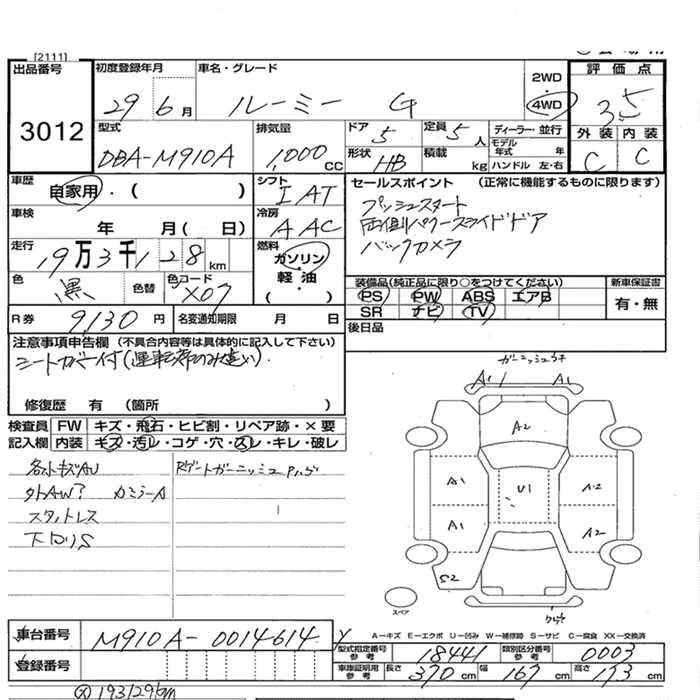 [2111]
出品番号
3012
初度登録年月
29年6月
車名・グレード
ルーミー G
2WD
4WD
評価点
3.5
外装 内装
C C
型式
DBA-M910A
排気量
1,000cc
ドア
5
定員
5人
形状
HB
積載
kg
ディーラー・並行
モデル年式 年
ハンドル 左・右
車歴
自家用・( )
シフト
IAT
車検
年 月( 日)
冷房
AAC
走行
19万3千128km
燃料
ガソリン
軽油
( )
色
黒
色替
色コード
X07
R券
9130円
名変通知期限 月 日
セールスポイント (正常に機能するものに限ります)
プッシュスタート
両側パワースライドドア
バックカメラ
装備品(純正品に限り○をつけてください)
PS PW ABS エアB
SR ナビ TV
新車保証書
有・無
後日品
注意事項申告欄 (不具合内容等は具体的に記入して下さい)
シートカバー付(運転席のみ違い)
修復歴 有 (箇所 )
検査員記入欄
FW キズ・飛石・ヒビ割・リペア跡・×要
内装 キズ・汚レ・コゲ・穴・スレ・キレ・破レ
外AW? カミラーA
スタットレス
下回りS
Rゲートガーニッシュ
ガーニッシュ
A1 A1
A2
A1 U1 A2
A1 A2
S2
スペア
A-キズ E-エクボ U-凹み W-補修跡 S-サビ C-腐食 XX-交換済
車台番号
M910A-0014614
Y
登録番号
型式指定番号 参考
18441
類別区分番号 参考
0003
車庫証明用 参考
長さ 370cm 幅 167cm 高さ 173cm
193129km